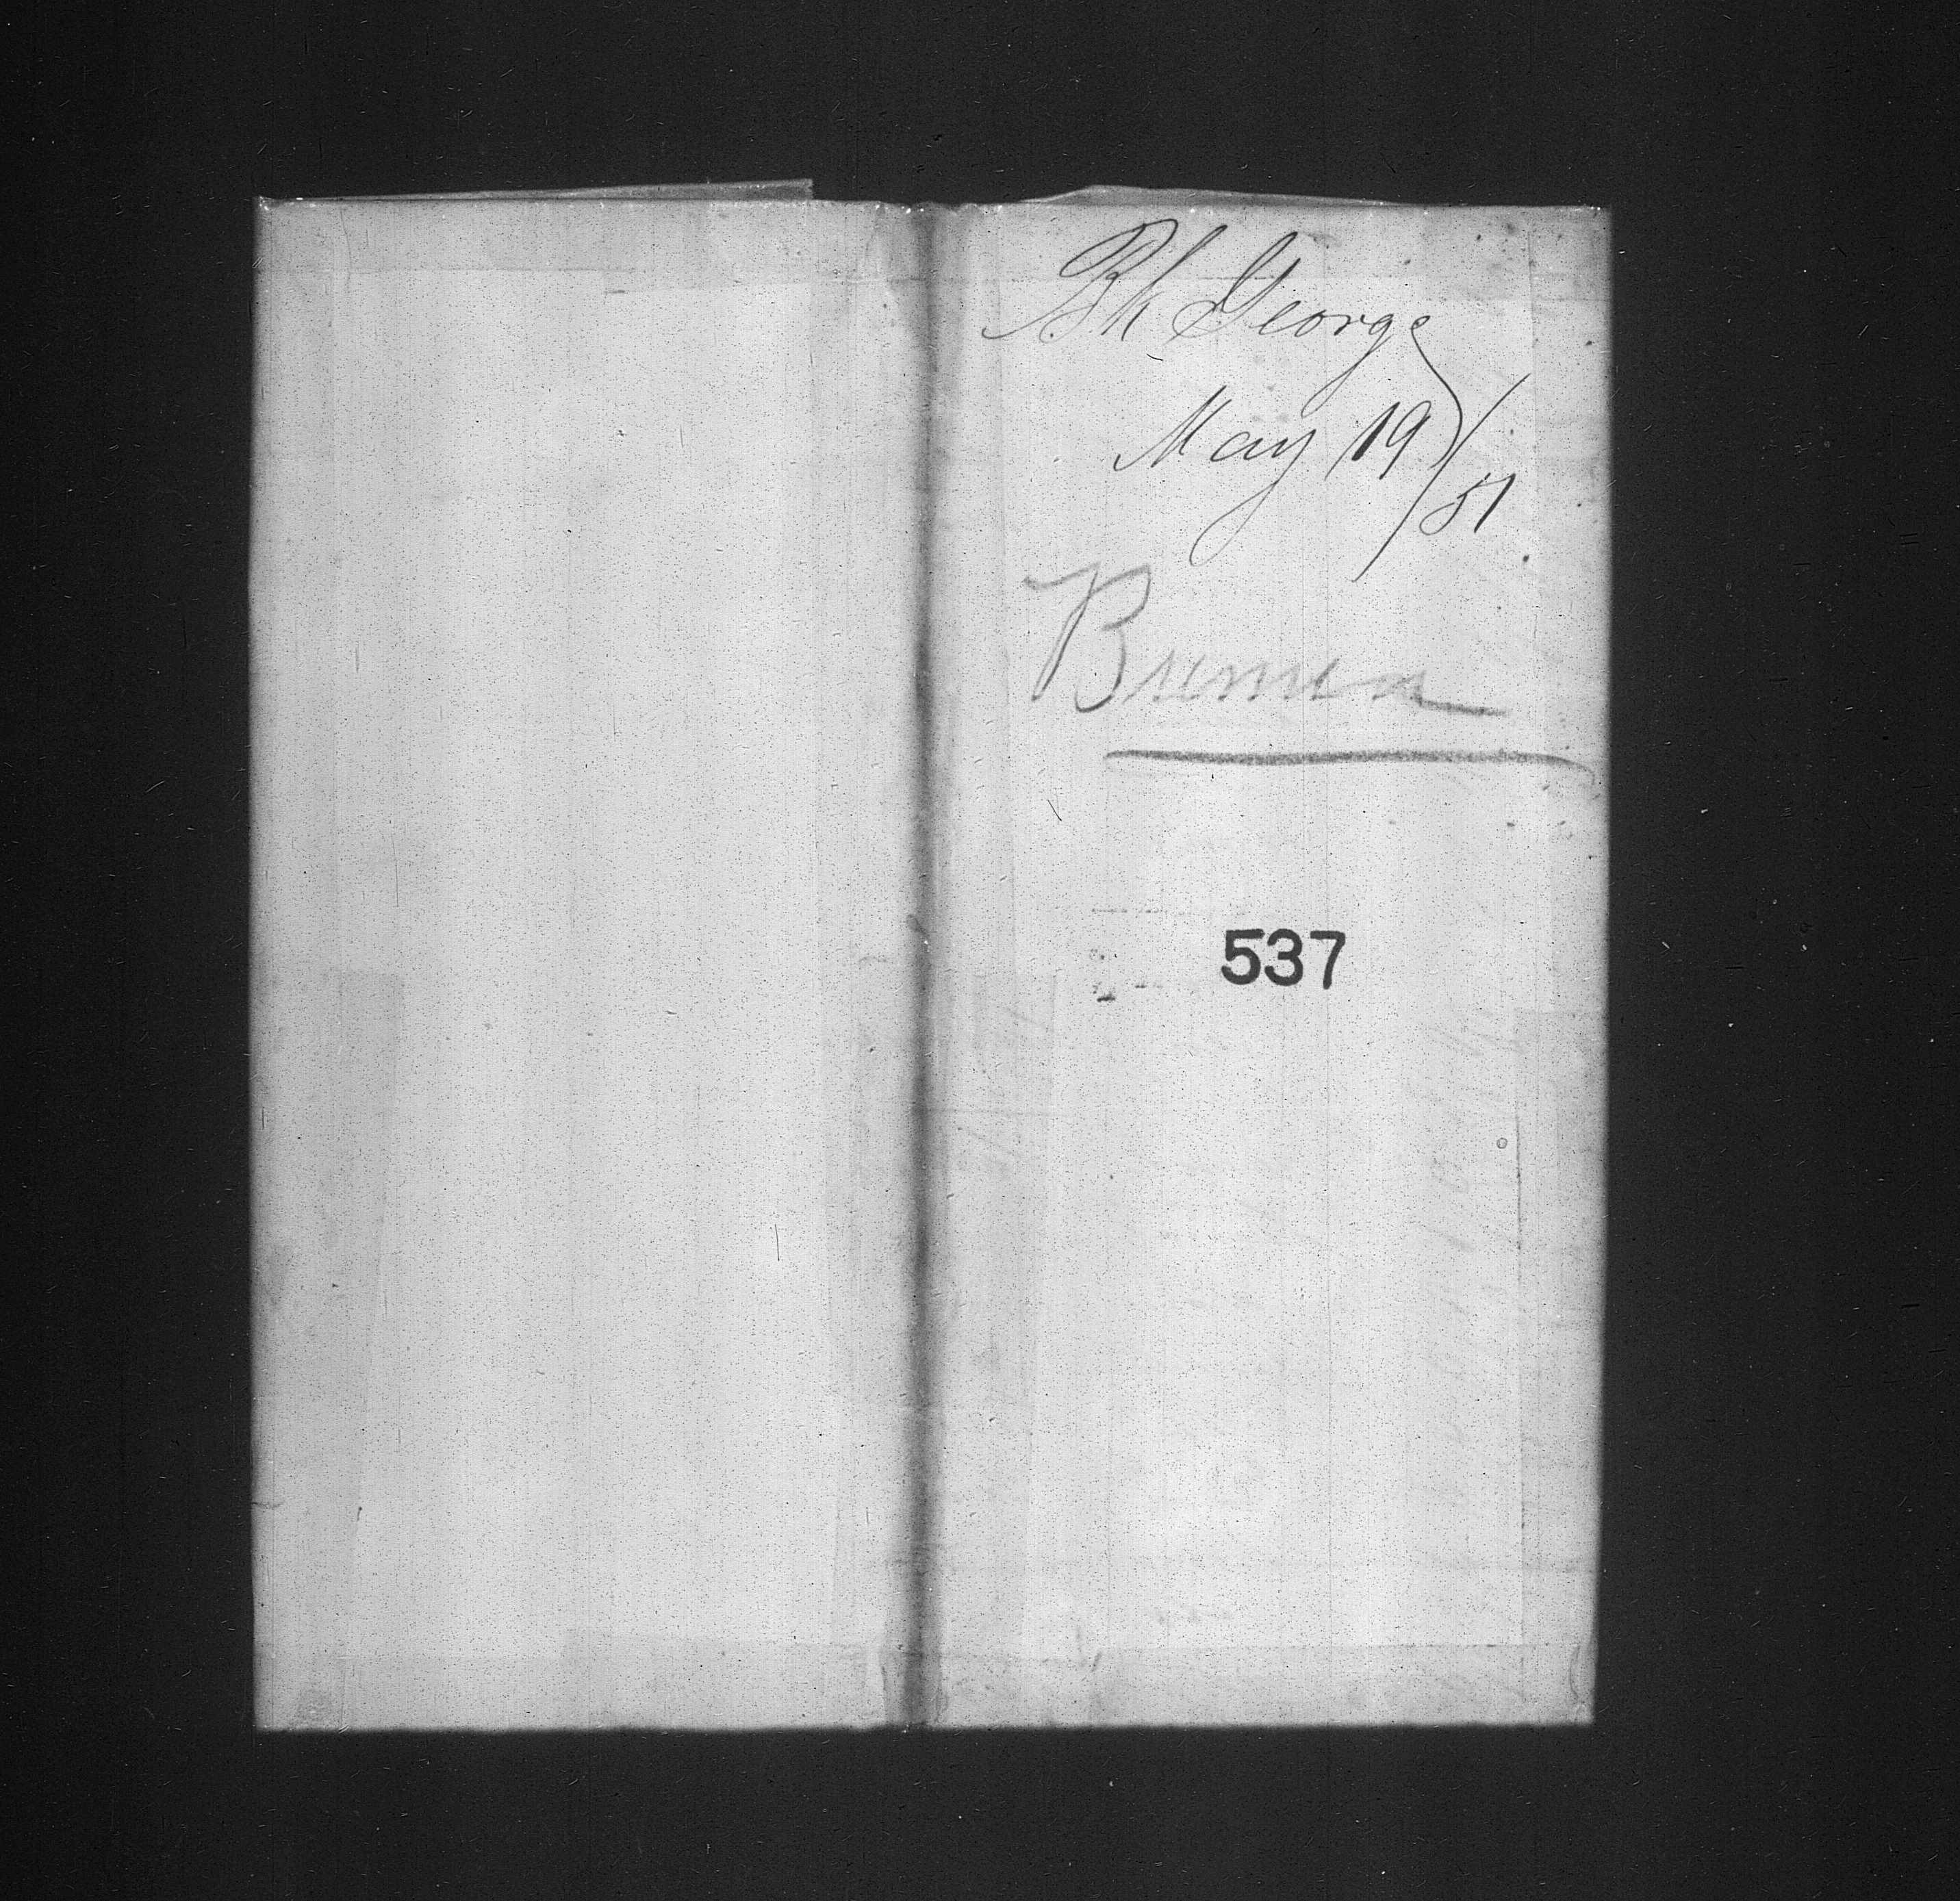 Bk George
May 19/51
Bremen
537